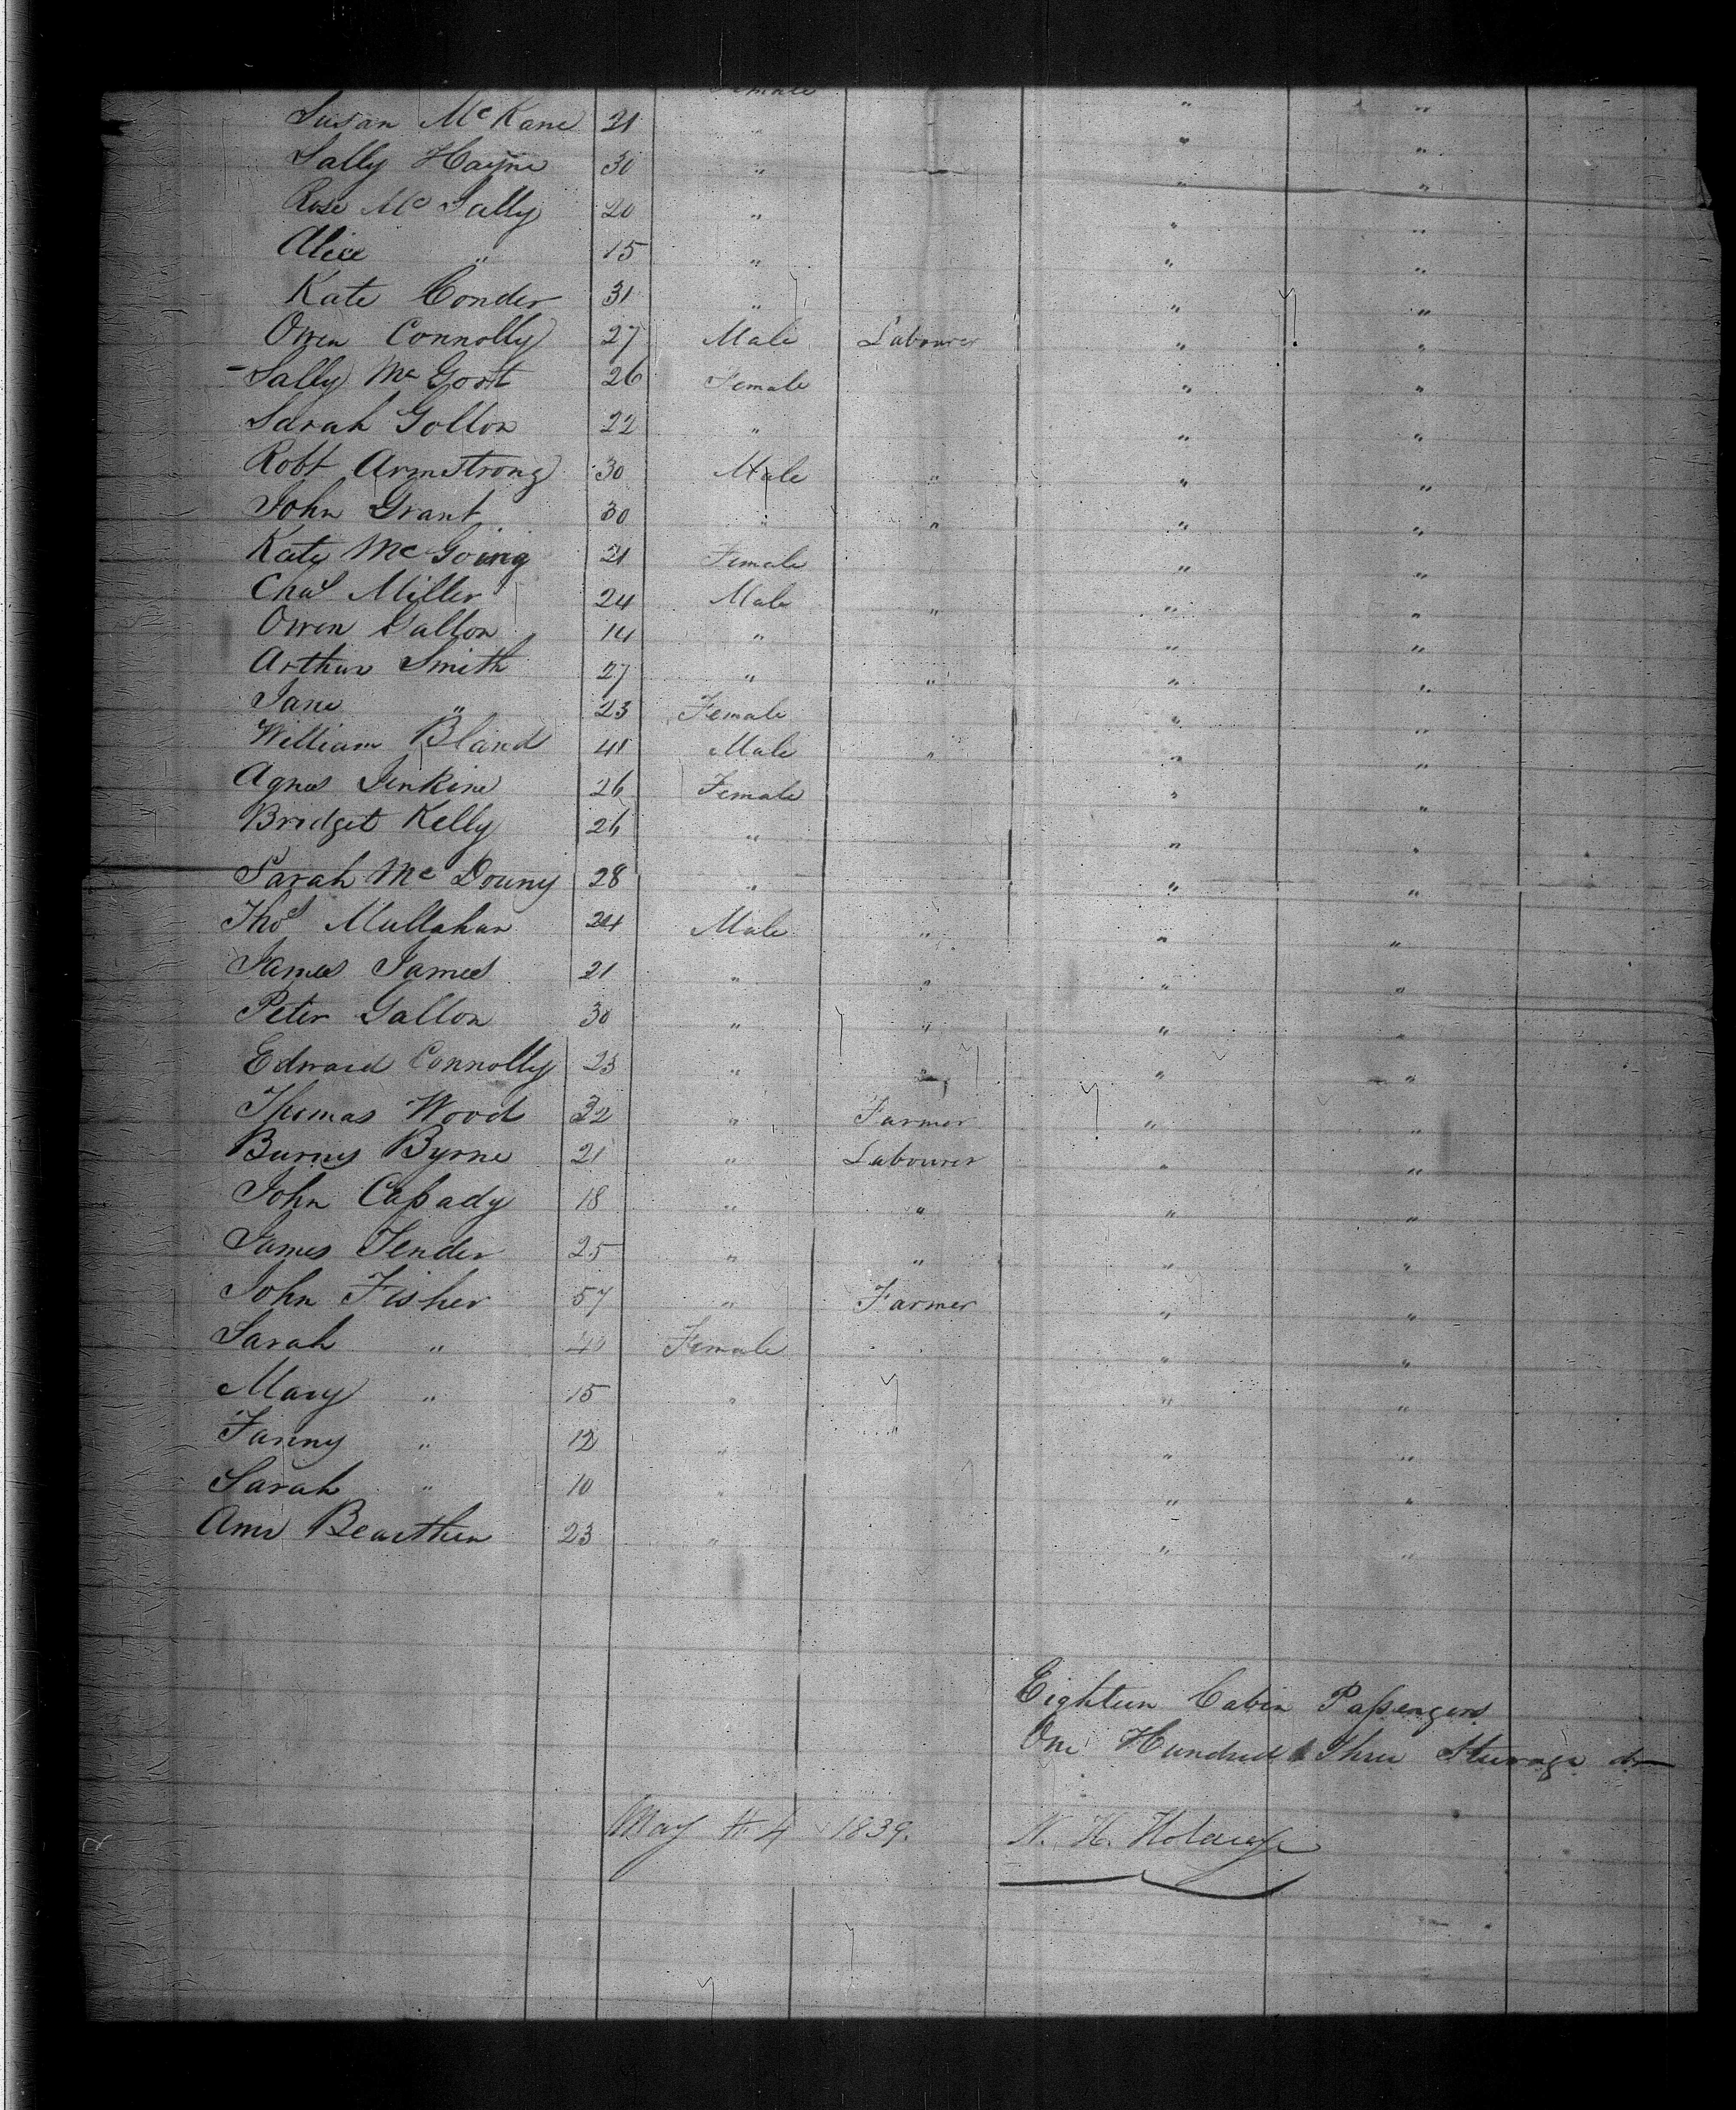 Female " "
Susan McKane 21 " " "
Sally Hayne 30 " " "
Rose McSally 20 " " "
Alice " 15 " " "
Kate Conder 31 " " "
Owen Connolly 27 Male Labourer " "
Sally McGort 26 Female " "
Sarah Gollon 22 " " "
Robt Armstrong 30 Male " " "
John Grant 30 " " " "
Katy McGoing 21 Female " "
Chas Miller 24 Male " " "
Owen Gallon 14 " " "
Arthur Smith 27 " " " "
Jane " 23 Female " "
William Bland 41 Male " " "
Agnes Jenkins 26 Female " "
Bridget Kelly 26 " " "
Sarah McDouny 28 " " "
Thos Mullahan 24 Male " " "
James James 21 " " " "
Peter Gallon 30 " " " "
Edward Connolly 23 " " " "
Thomas Wood 32 " Farmer " "
Burney Byrne 21 " Labourer " "
John Caſsady 18 " " " "
James Tender 25 " " " "
John Fisher 57 " Farmer " "
Sarah " 40 Female " "
Mary " 15 " " "
Fanny " 12 " " " "
Sarah " 10 " " "
Ann 23 " " "
Eighteen Cabin Paſsengers
One Hundred & Three Steerage do
May 4 1839. N. H. Holdrege